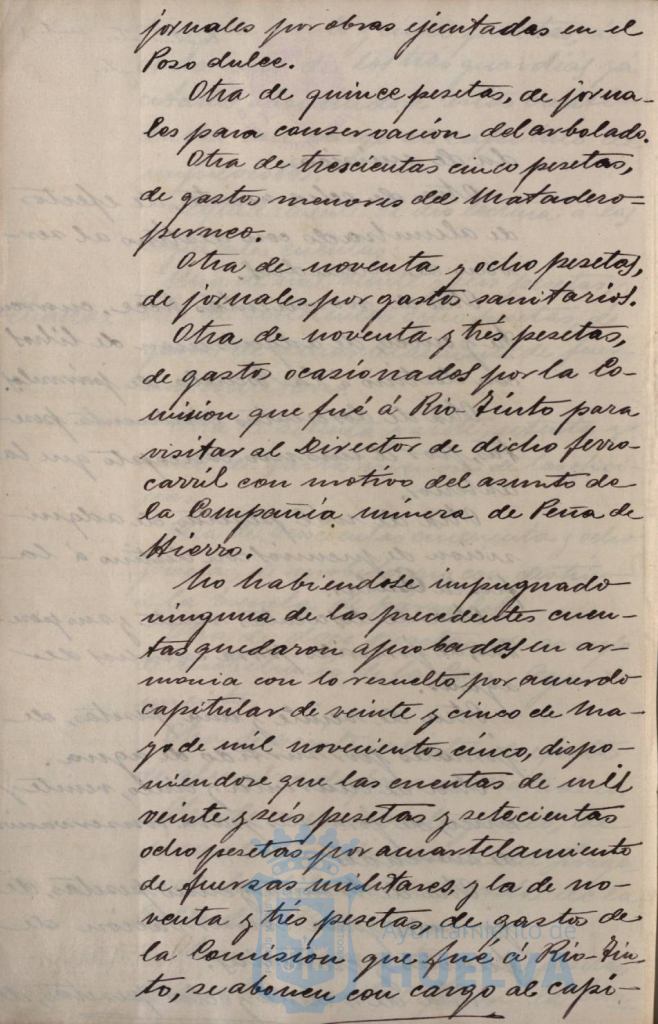 jornales por obras ejecutadas en el
Poso dulce.
Otra de quince pesetas, de jorna-
les para conservación del arbolado.
Otra de trescientas cinco pesetas,
de gastos menores del Matadero-
perneo.
Otra de noventa y ocho pesetas,
de jornales por gastos sanitarios.
Otra de noventa y trés pesetas,
de gastos ocasionados por la Co-
mision que fué á Rio-Tinto para
visitar al Director de dicho ferro-
carril con motivo del asunto de
la Compañia minera de Peña de
Hierro.
No habiendose impugnado
ninguna de las precedentes cuen-
tas quedaron aprobadas en ar-
monia con lo resuelto por acuerdo
capitular de veinte y cinco de Ma-
yo de mil novecientos cinco, dispo-
niendose que las cuentas de mil
veinte y seis pesetas y setecientas
ocho pesetas por acuartelamiento
de fuerzas militares, y la de no-
venta y trés pesetas, de gastos de
la Comision que fué á Rio-Tin-
to, se abonen con cargo al capi-
Ayuntamiento de
HUELVA